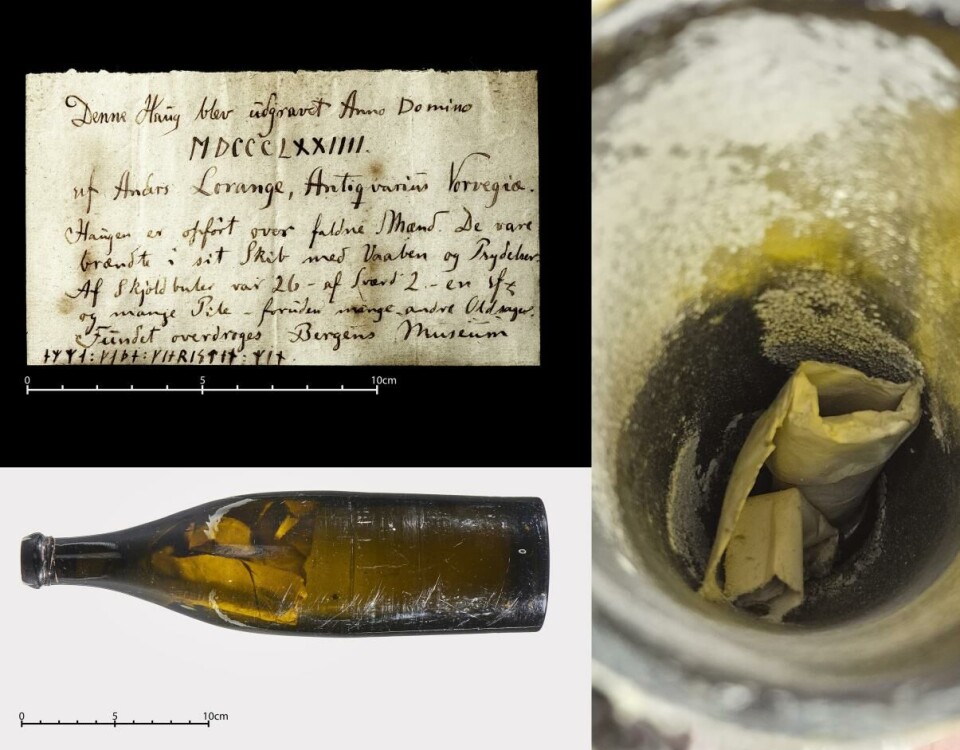 Denne Haug blev údgravet Anno Domino
MDCCCLXXIIII.
af Anders Lorange, Antiqvariús Norvegiæ.
Haugen er opført over faldne Mænd. De vare
brændte i sit Skib med Vaaben og Prydelser.
Af Skjoldbuler var 26 - af Sværd 2 - en
og mange Pile - foruden mange andre Oldsager.
Fúndet overdroges Bergens Múseúm
0 5 10cm
0 5 10cm